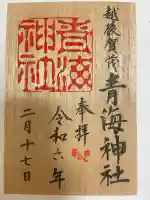 越後賀茂
青海神社
奉拝
令和六年
二月十七日
青海
神社